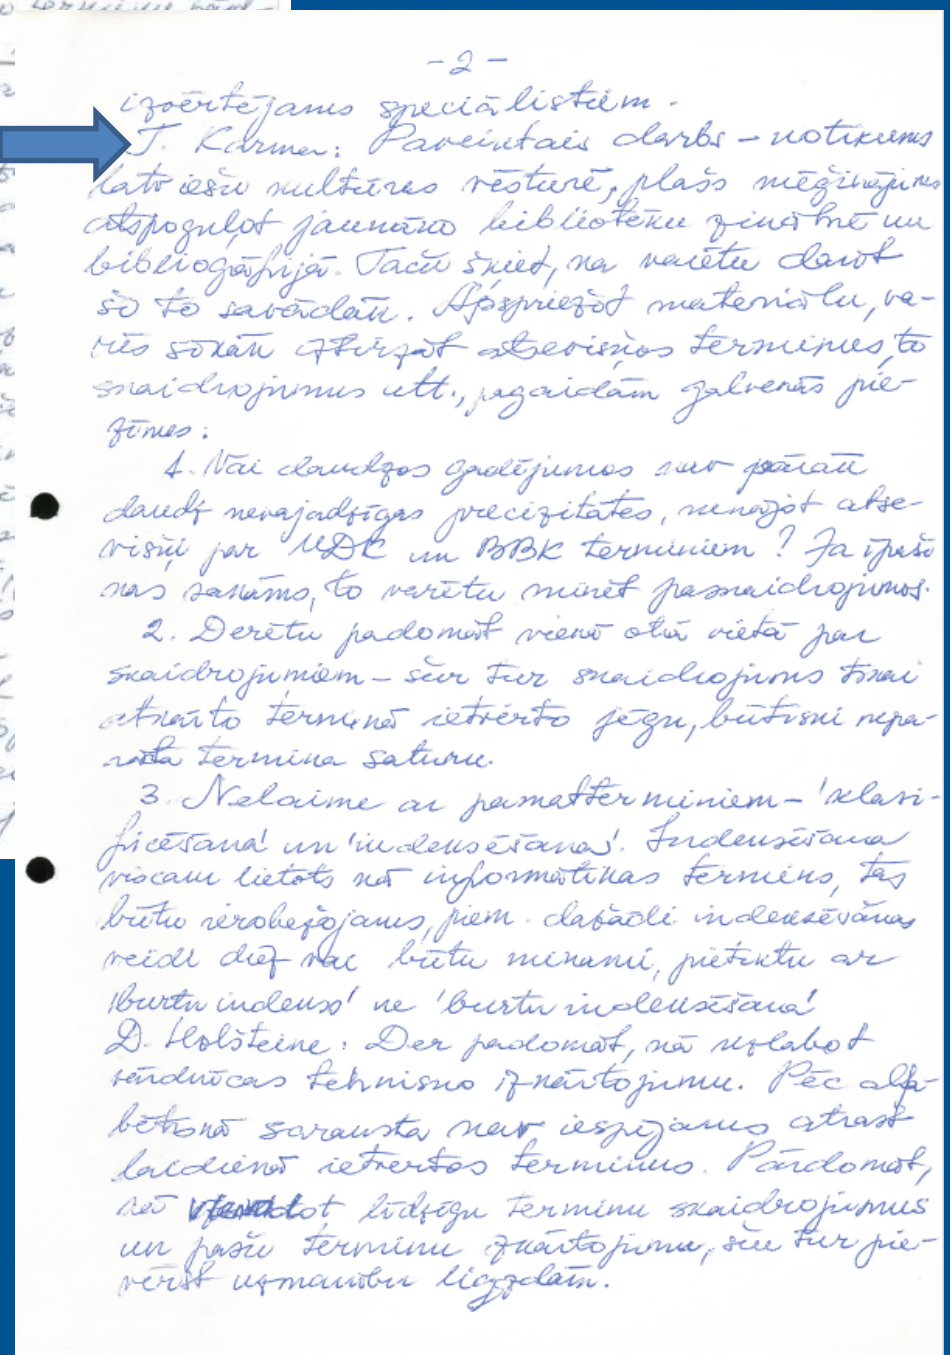 - 2 -
izvērtējams speciālistiem.
T. Karma: Paveiktais darbs – notikums
latviešu kultūras vēsturē, plašs mēģinājums
atspoguļot jaunāko bibliotēku zinātnē un
bibliogrāfijā. Taču šķiet, ka varētu darīt
šo to savādāk. Apspriežot materiālu, va-
rēs sīkāk iztirzāt atsevišķos terminus, to
skaidrojumus utt., pagaidām galvenās pie-
zīmes:
1. Vai daudzos gadījumos nav pārāk
daudz nevajadzīgas precizitātes, runājot atse-
višķi par UDK un BBK terminiem? Ja īpaši
kas sakāms, to varētu minēt paskaidrojumos.
2. Derētu padomāt vienā otrā vietā par
skaidrojumiem – šur tur skaidrojums tikai
atkārto terminā ietverto jēgu, būtiski nepa-
rāda termina saturu.
3. Nelaime ar pamatterminiem – 'klasi-
ficēšana' un 'indeksēšana'. Indeksēšana
viscaur lietots kā informātikas termins, tas
būtu ierobežojams, piem. dažādi indeksēšanas
veidi diez vai būtu minami, pietiktu ar
'burtu indekss' ne 'burtu indeksēšana'
D. Holšteine: Der padomāt, kā uzlabot
vārdnīcas tehnisko izkārtojumu. Pēc alfa-
bētiskā saraksta nav iespējams atrast
laidienā ietvertos terminus. Pārdomāt,
kā līdzīgu terminu skaidrojumus
un pašu terminu izkārtojumu, šur tur pie-
vērst uzmanību ligzdām.